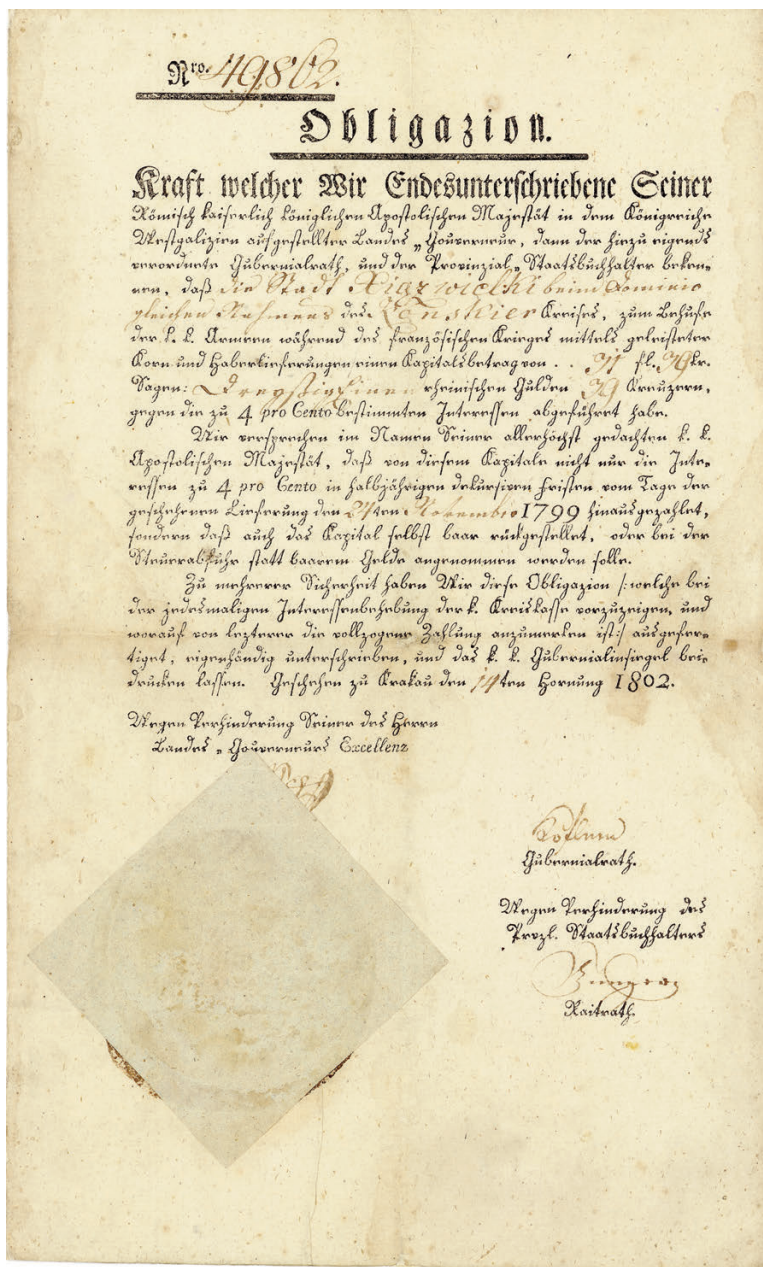 Nro. 49862.
Obligazion.
Kraft welcher Wir Endesunterschriebene Seiner
Römisch kaiserlich königlichen Apostolischen Majestät in dem Königreiche
Westgalizien aufgestellter Landes-Gouverneur, dann der hiezu eigends
verordnete Gubernialrath, und der Provinzial-Staatsbuchhalter beken-
nen, daß die Stadt beim Dominio
gleichen Nahmens des Kreises, zum Behufe
der k. k. Armeen während des französischen Krieges mittels geleisteter
Korn und Haberlieferungen einen Kapitalsbetrag von . . 31 fl. 39 kr.
Sagen: Dreyßigeinen rheinischen Gulden 39 Kreuzern,
gegen die zu 4 pro Cento bestimmten Interessen abgeführet habe.
Wir versprechen im Namen Seiner allerhöchst gedachten k. k.
Apostolischen Majestät, daß von diesem Kapitale nicht nur die Inte-
ressen zu 4 pro Cento in halbjährigen dekursiven Fristen vom Tage der
geschehenen Lieferung den 24ten Novembris 1799 hinausgezahlet,
sondern daß auch das Kapital selbst baar rückgestellet, oder bei der
Steuerabfuhr statt baarem Gelde angenommen werden solle.
Zu mehrerer Sicherheit haben Wir diese Obligazion /: welche bei
der jedesmaligen Interessenbehebung der k. Kreiskasse vorzuzeigen, und
worauf von lezterer die vollzogene Zahlung anzumerken ist :/ ausgefer-
tiget, eigenhändig unterschrieben, und das k. k. Gubernialinsiegel bei-
drucken lassen. Geschehen zu Krakau den 14ten Hornung 1802.
Wegen Verhinderung Seiner des Herrn
Landes-Gouverneurs Excellenz
Gubernialrath.
Wegen Verhinderung des
Provzl. Staatsbuchhalters
Raitrath.